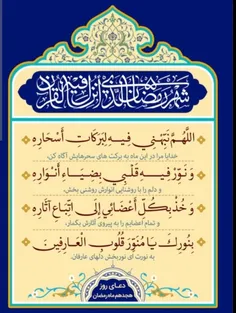 شَهرُ رَمَضان الَّذی اُنزِلَ فیهِ القُرآن
اَللّهُمَّ نَبِّهْنی فیهِ لِبَرَکاتِ أَسْحارِهِ
خدایا مرا در این ماه به برکت های سحرهایش آگاه کن،
وَ نَوِّرْ فیهِ قَلْبی بِضِیاءِ أَنْوارِهِ
و دلم را با روشنایی انوارش روشنی بخش،
وَ خُذْ بِکُلِّ أَعْضائی إِلَی اتِّباعِ آثارِهِ
و تمام اعضایم را به پیروی آثارش بگمار،
بِنُورِکَ یا مُنَوِّرَ قُلوبِ الْعارِفینَ
به نورت ای نوربخش دلهای عارفان.
دعـای روز
هجدهم ماه رمضان